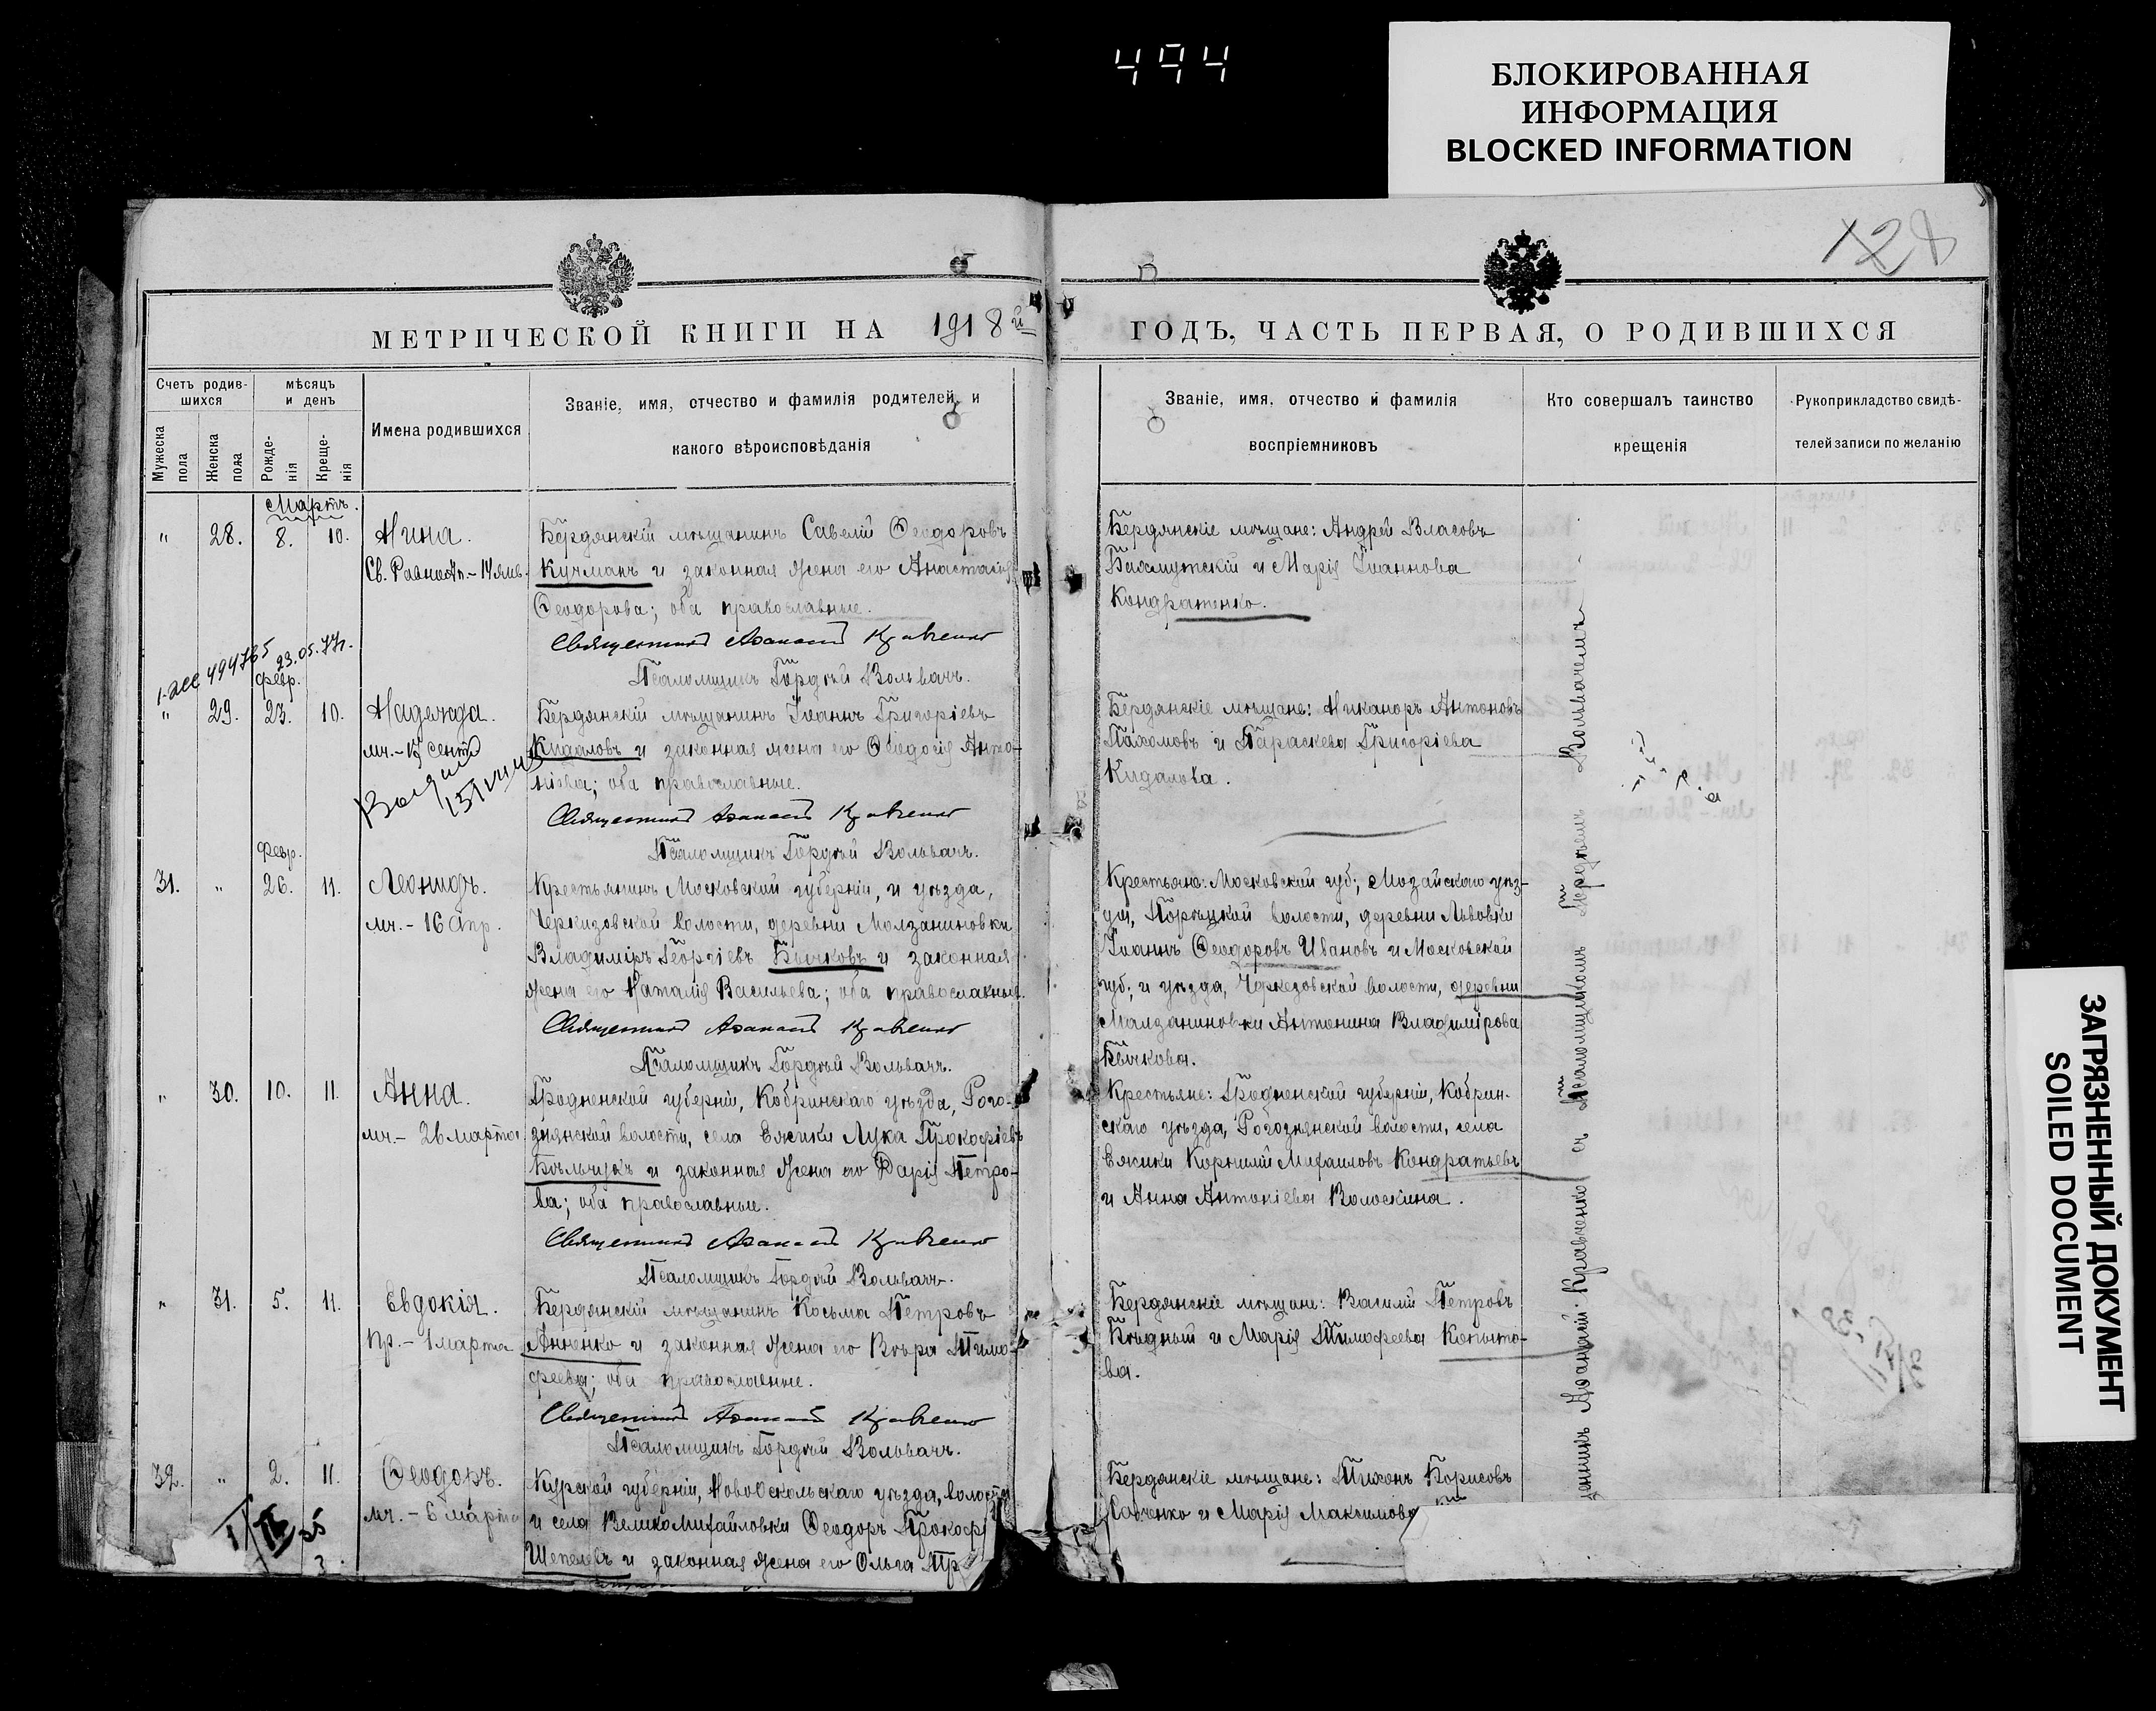 494
БЛОКИРОВАННАЯ
ИНФОРМАЦИЯ
BLOCKED INFORMATION
128
МЕТРИЧЕСКОЙ КНИГИ НА 1918 й
ГОДЪ, ЧАСТЬ ПЕРВАЯ, О РОДИВШИХСЯ
Счетъ родив-
шихся
мѣсяцъ
и день
Мужеска
пола
Женска
пола
Рожде-
нія
Креще-
нія
Имена родившихся
Званіе, имя, отчество и фамилія родителей, и
какого вѣроисповѣданія
Званіе, имя, отчество и фамилія
воспріемниковъ
Кто совершалъ таинство
крещенія
Рукоприкладство свидѣ-
телей записи по желанію
Мартъ.
" 28. 8. 10. Нина.
Св. Равноап. - 14 янв.
Бердянскій мѣщанинъ Савелій Ѳеодоровъ
Кучманъ и законная жена его Анастасія
Ѳеодорова; оба православные.
Священникъ Аѳанасій Кравченко
Псаломщикъ Гордѣй Вольвачъ.
Бердянскіе мѣщане: Андрей Власовъ
Бахмутскій и Марія Іоаннова
Кондратенко.
494765
23.05.77г.
Февр.
" 29. 23. 10. Надежда.
мч. - 17 сент
Бердянскій мѣщанинъ Іоаннъ Григоріевъ
Кидаловъ и законная жена его Ѳеодосія Анто-
ніева; оба православные.
Священникъ Аѳанасій Кравченко
Псаломщикъ Гордѣй Вольвачъ.
Бердянскіе мѣщане: Никаноръ Антоновъ
Пахомовъ и Параскева Григоріева
Кидалова.
Февр.
31. " 26. 11. Леонидъ.
мч. - 16 Апр.
Крестьянинъ Московской губерніи, и уѣзда,
Черкизовской волости, деревни Молзаниновки
Владиміръ Георгіевъ Бычковъ и законная
жена его Наталія Васильева; оба православные.
Священникъ Аѳанасій Кравченко
Псаломщикъ Гордѣй Вольвачъ.
Крестьяне: Московской губ; Можайскаго уѣз-
да, Порѣцкой волости, деревни Львовки
Іоаннъ Ѳеодоровъ Ивановъ и Московской
губ; и уѣзда, Черкезовской волости, деревни
Малзаниновки Антонина Владимірова
Бычкова.
" 30. 10. 11. Анна.
мч. - 26 марта
Гродненской губерніи, Кобринскаго уѣзда, Рого-
знянской волости, села Ежики Лука Прокофіевъ
Бѣльчукъ и законная жена его Дарія Петро-
ва; оба православные.
Священникъ Аѳанасій Кравченко
Псаломщикъ Гордѣй Вольвачъ.
Крестьяне: Гродненской губерніи, Кобрин-
скаго уѣзда, Рогознянской волости, села
Ежики Корнилій Михаиловъ Кондратьевъ
и Анна Антоніева Волоскина.
" 31. 5. 11. Евдокія.
Пр. - 1 марта
Бердянскій мѣщанинъ Косьма Петровъ
Анненко и законная жена его Вѣра Тимо-
феева; оба православные.
Священникъ Аѳанасій Кравченко
Псаломщикъ Гордѣй Вольвачъ.
Бердянскіе мѣщане: Василій Петровъ
Бѣдный и Марія Тимофеева Копыто-
ва.
32. " 2. 11. Ѳеодоръ.
мч. - 6 марта
Курской губерніи, НовоОскольскаго уѣзда, волости
и села ВеликоМихайловки Ѳеодоръ Прокоф
Шепелевъ и законная жена его Ольга
Бердянскіе мѣщане: Тихонъ Борисовъ
Савенко и Марія Максимова
Аѳанасій Кравченко съ Псаломщикомъ Гордѣемъ Вольвачемъ
ЗАГРЯЗНЕННЫЙ ДОКУМЕНТ
SOILED DOCUMENT